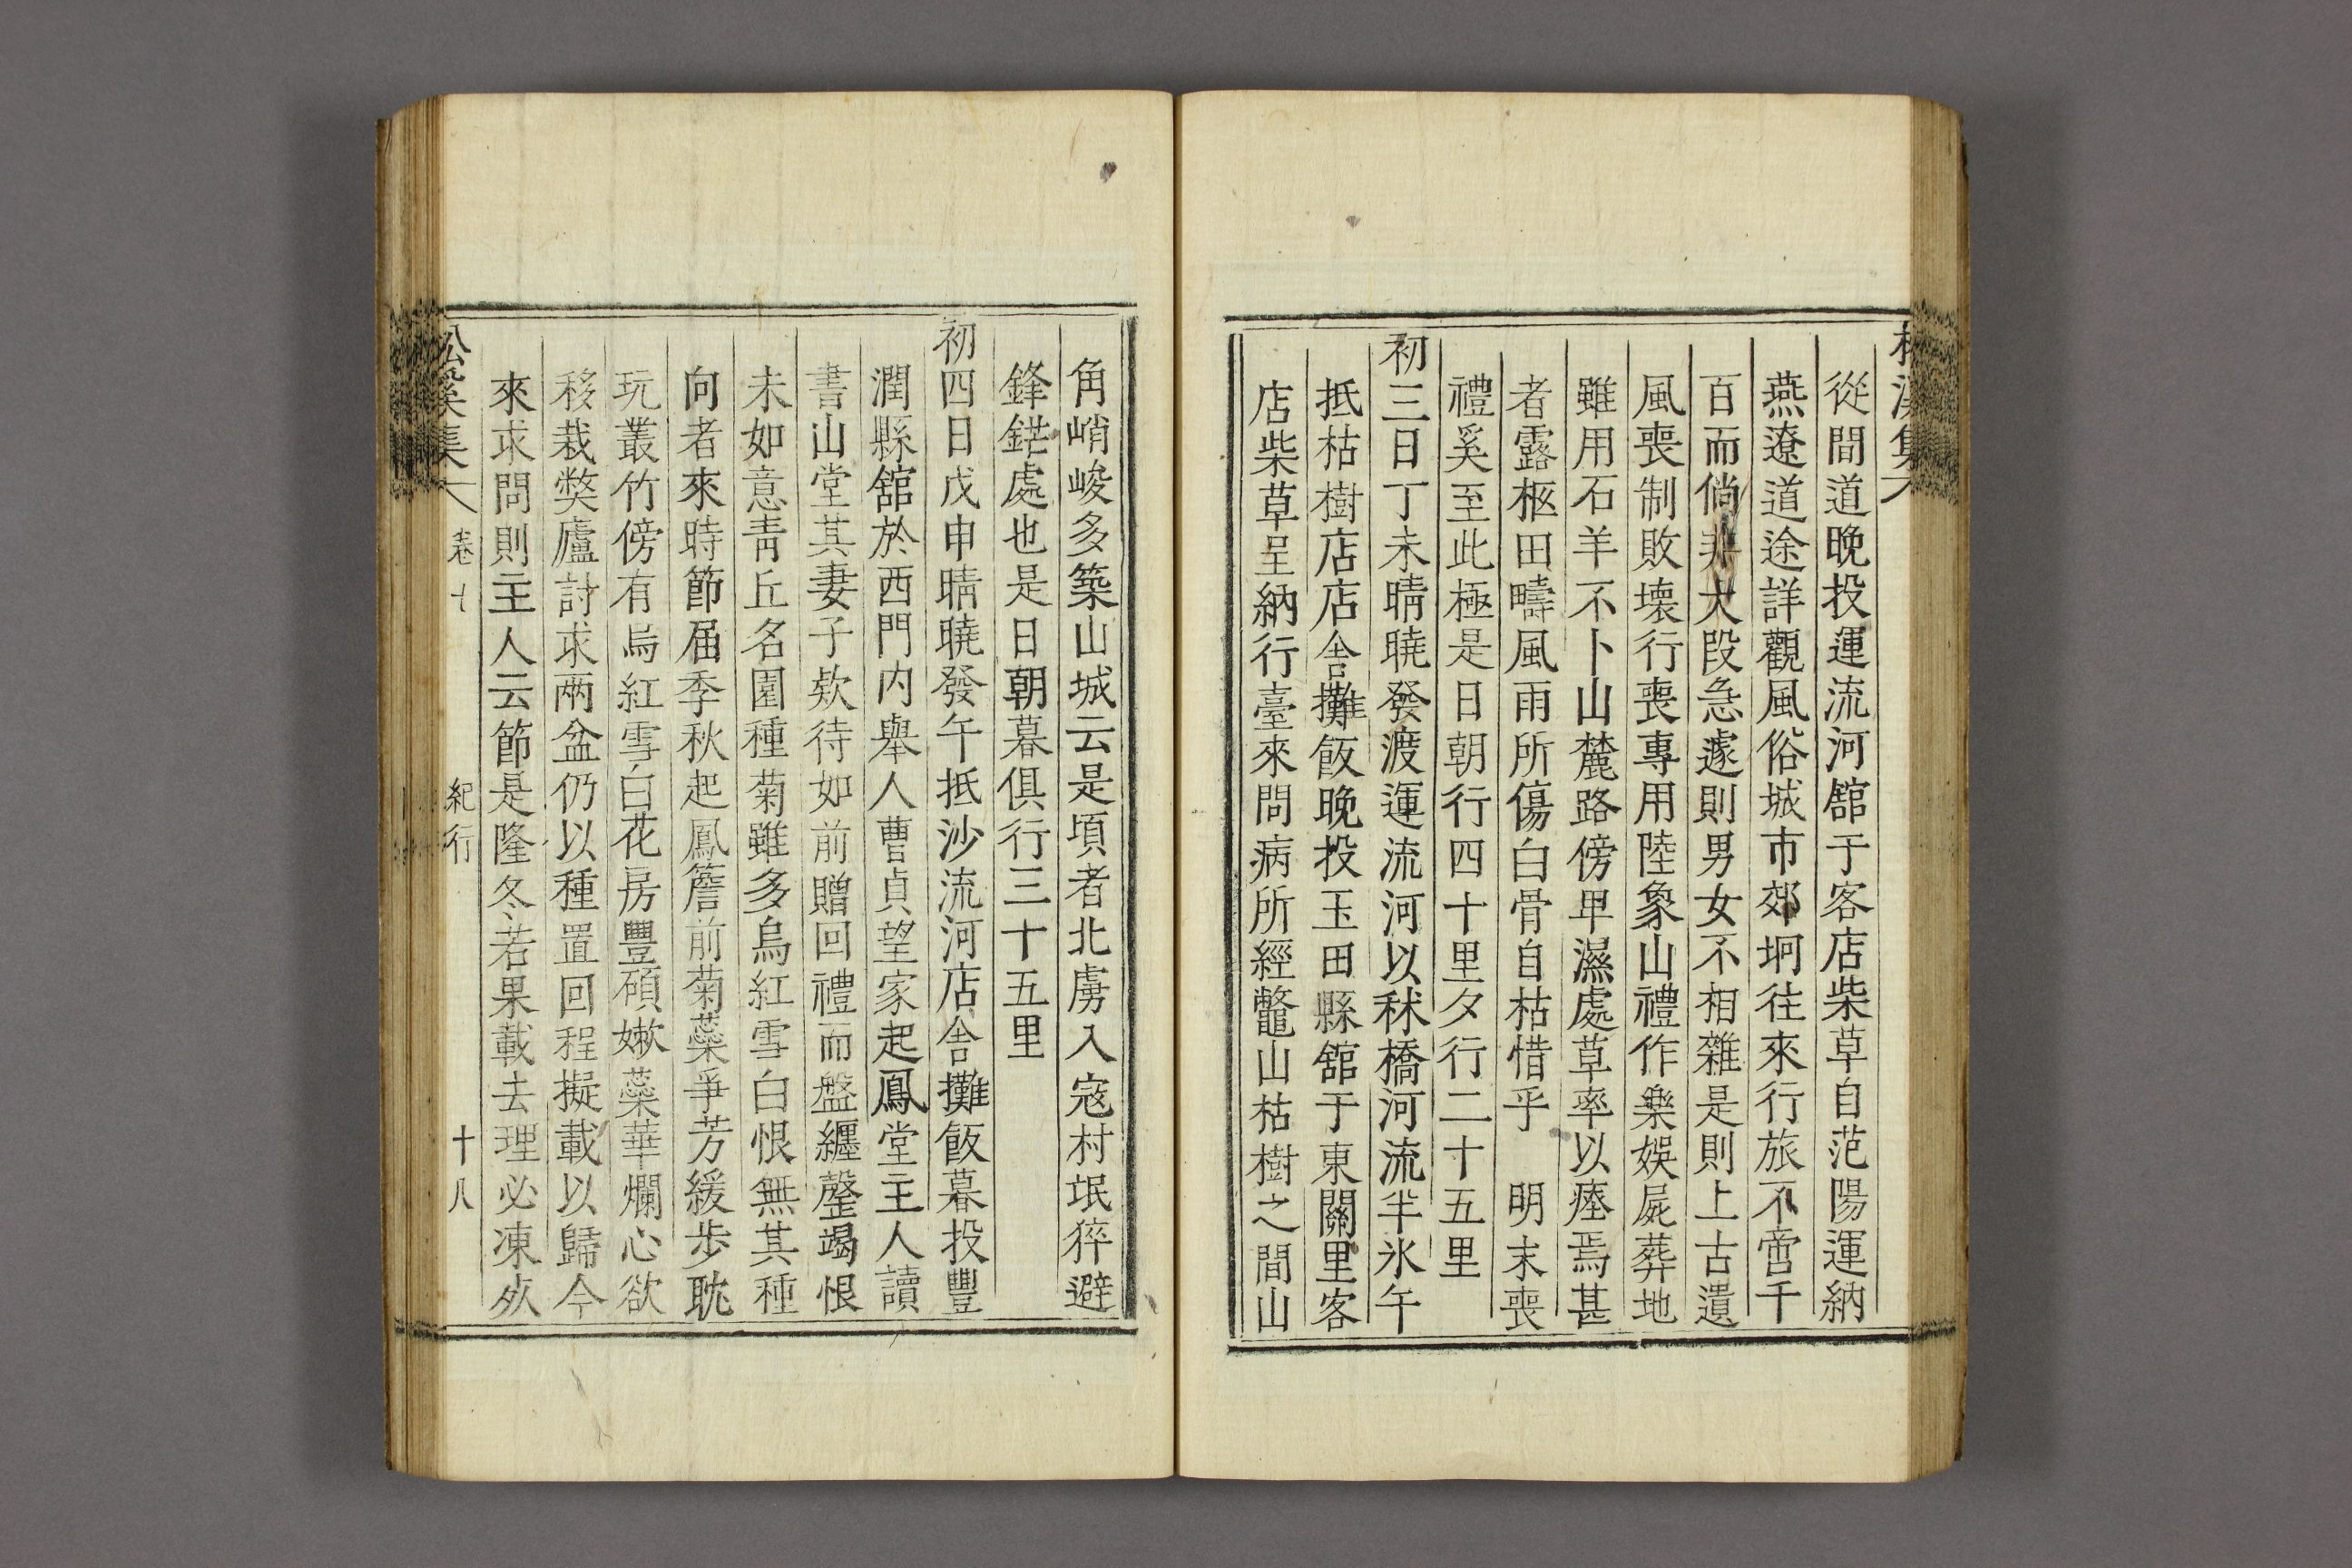 從間道晩投運流河舘于客店柴草自范陽運納
燕遼道途詳觀風俗城市郊坰往來行旅不啻千
百而倘非大段急遽則男女不相雜是則上古遺
風喪制敗壞行喪專用陸象山禮作樂娛屍葬地
雖用石羊不卜山麓路傍卑濕處草率以瘞焉甚
者露柩田疇風雨所傷白骨自枯惜乎 明末喪
禮奚至此極是日朝行四十里夕行二十五里
初三日丁未晴曉發渡運流河以秫橋河流半氷午
抵枯樹店店舍攤飯晩投玉田縣舘于東關里客
店柴草呈納行臺來問病所經鼈山枯樹之間山
角峭峻多築山城云是頃者北虜入寇村氓猝避
鋒鋩處也是日朝暮俱行三十五里
初四日戊申晴曉發午抵沙流河店舍攤飯暮投豐
潤縣舘於西門内舉人曹貞望家起鳳堂主人讀
書山堂其妻子欵待如前贈回禮而盤纏罄竭恨
未如意靑丘名園種菊雖多烏紅雪白恨無其種
向者來時節届季秋起鳳簷前菊蘂爭芳緩步耽
玩叢竹傍有烏紅雪白花房豐碩嫩蘂華爛心欲
移栽獘廬討求兩盆仍以種置回程擬載以歸今
來求問則主人云節是隆冬若果載去理必凍死
松溪集 卷七 紀行 十八